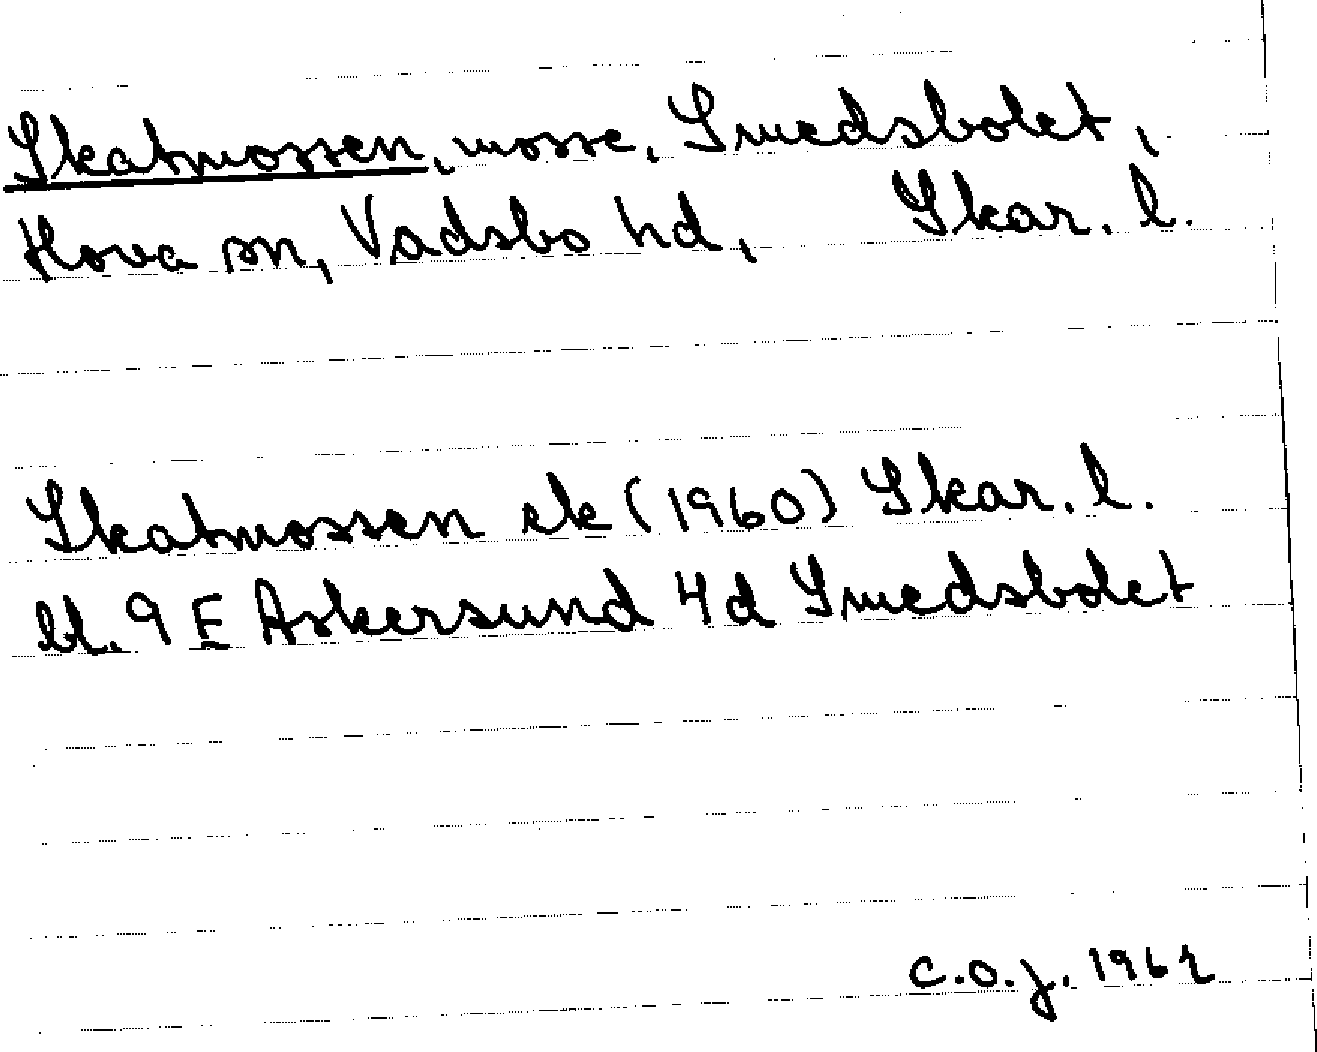 Skatmossen, mosse, Smedsbolet,
Hova sn, Vadsbo hd, Skar. l.
Skatmossen ek (1960) Skar. l.
bl. 9 E Askersund 4d Smedsbolet
C.O.J. 1962